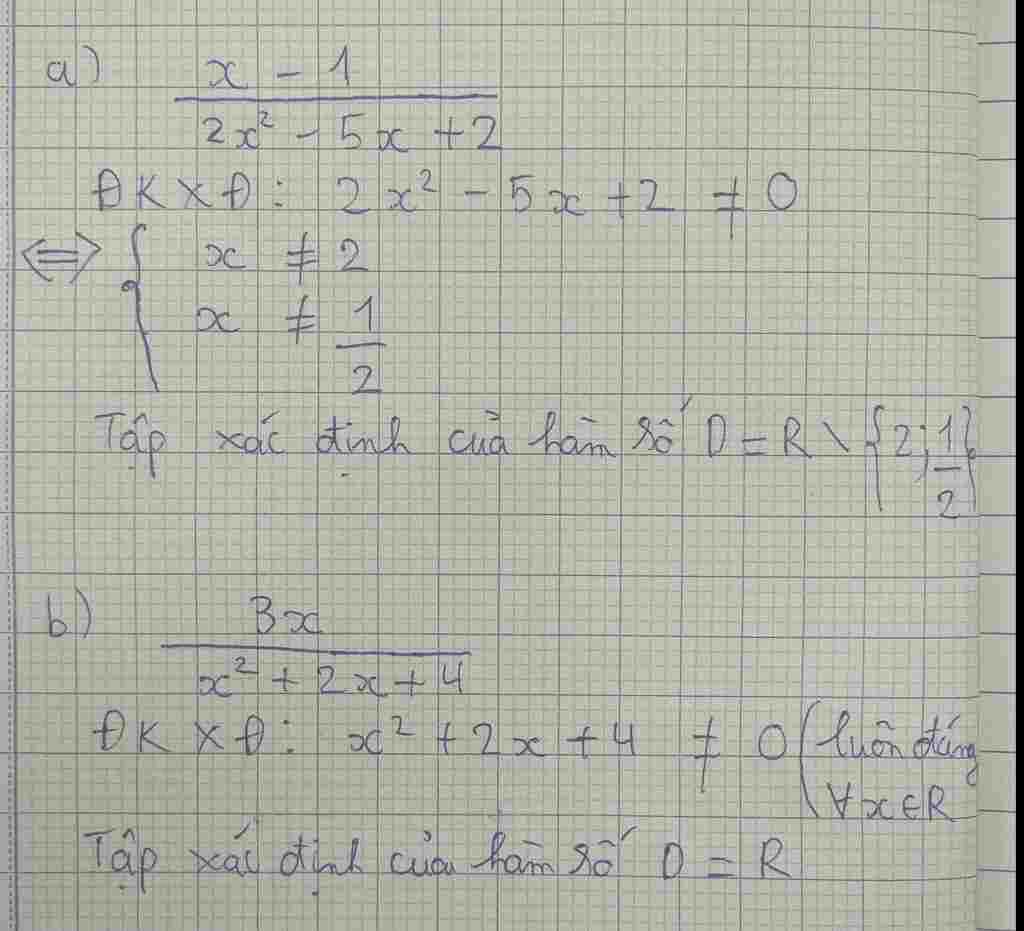 a) x - 1 / 2x² - 5x + 2
ĐKXĐ: 2x² - 5x + 2 ≠ 0
⟺ { x ≠ 2
x ≠ 1/2
Tập xác định của hàm số D = R \ {2; 1/2}
b) 3x / x² + 2x + 4
ĐKXĐ: x² + 2x + 4 ≠ 0 (luôn đúng
∀x∈R
Tập xác định của hàm số D = R